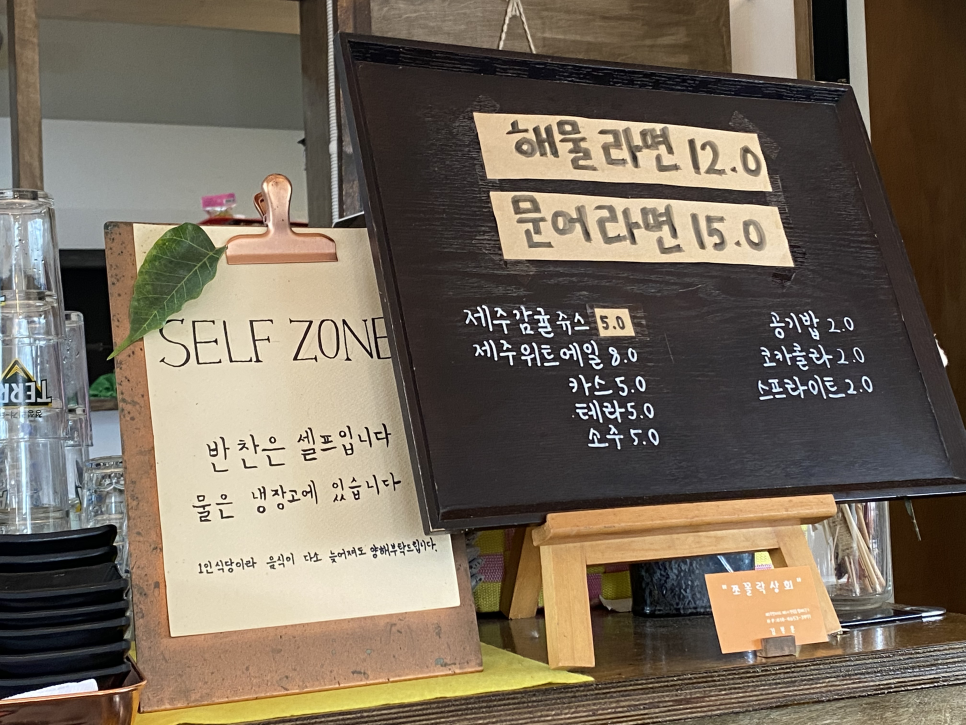 해물라면 12.0
문어라면 15.0
제주감귤쥬스 5.0
제주위트에일 8.0
카스 5.0
테라 5.0
소주 5.0
공기밥 2.0
코카콜라 2.0
스프라이트 2.0
SELF ZONE
반찬은 셀프입니다
물은 냉장고에 있습니다
1인식당이라 음식이 다소 늦어져도 양해부탁드립니다.
TERR
"쪼물락상회"